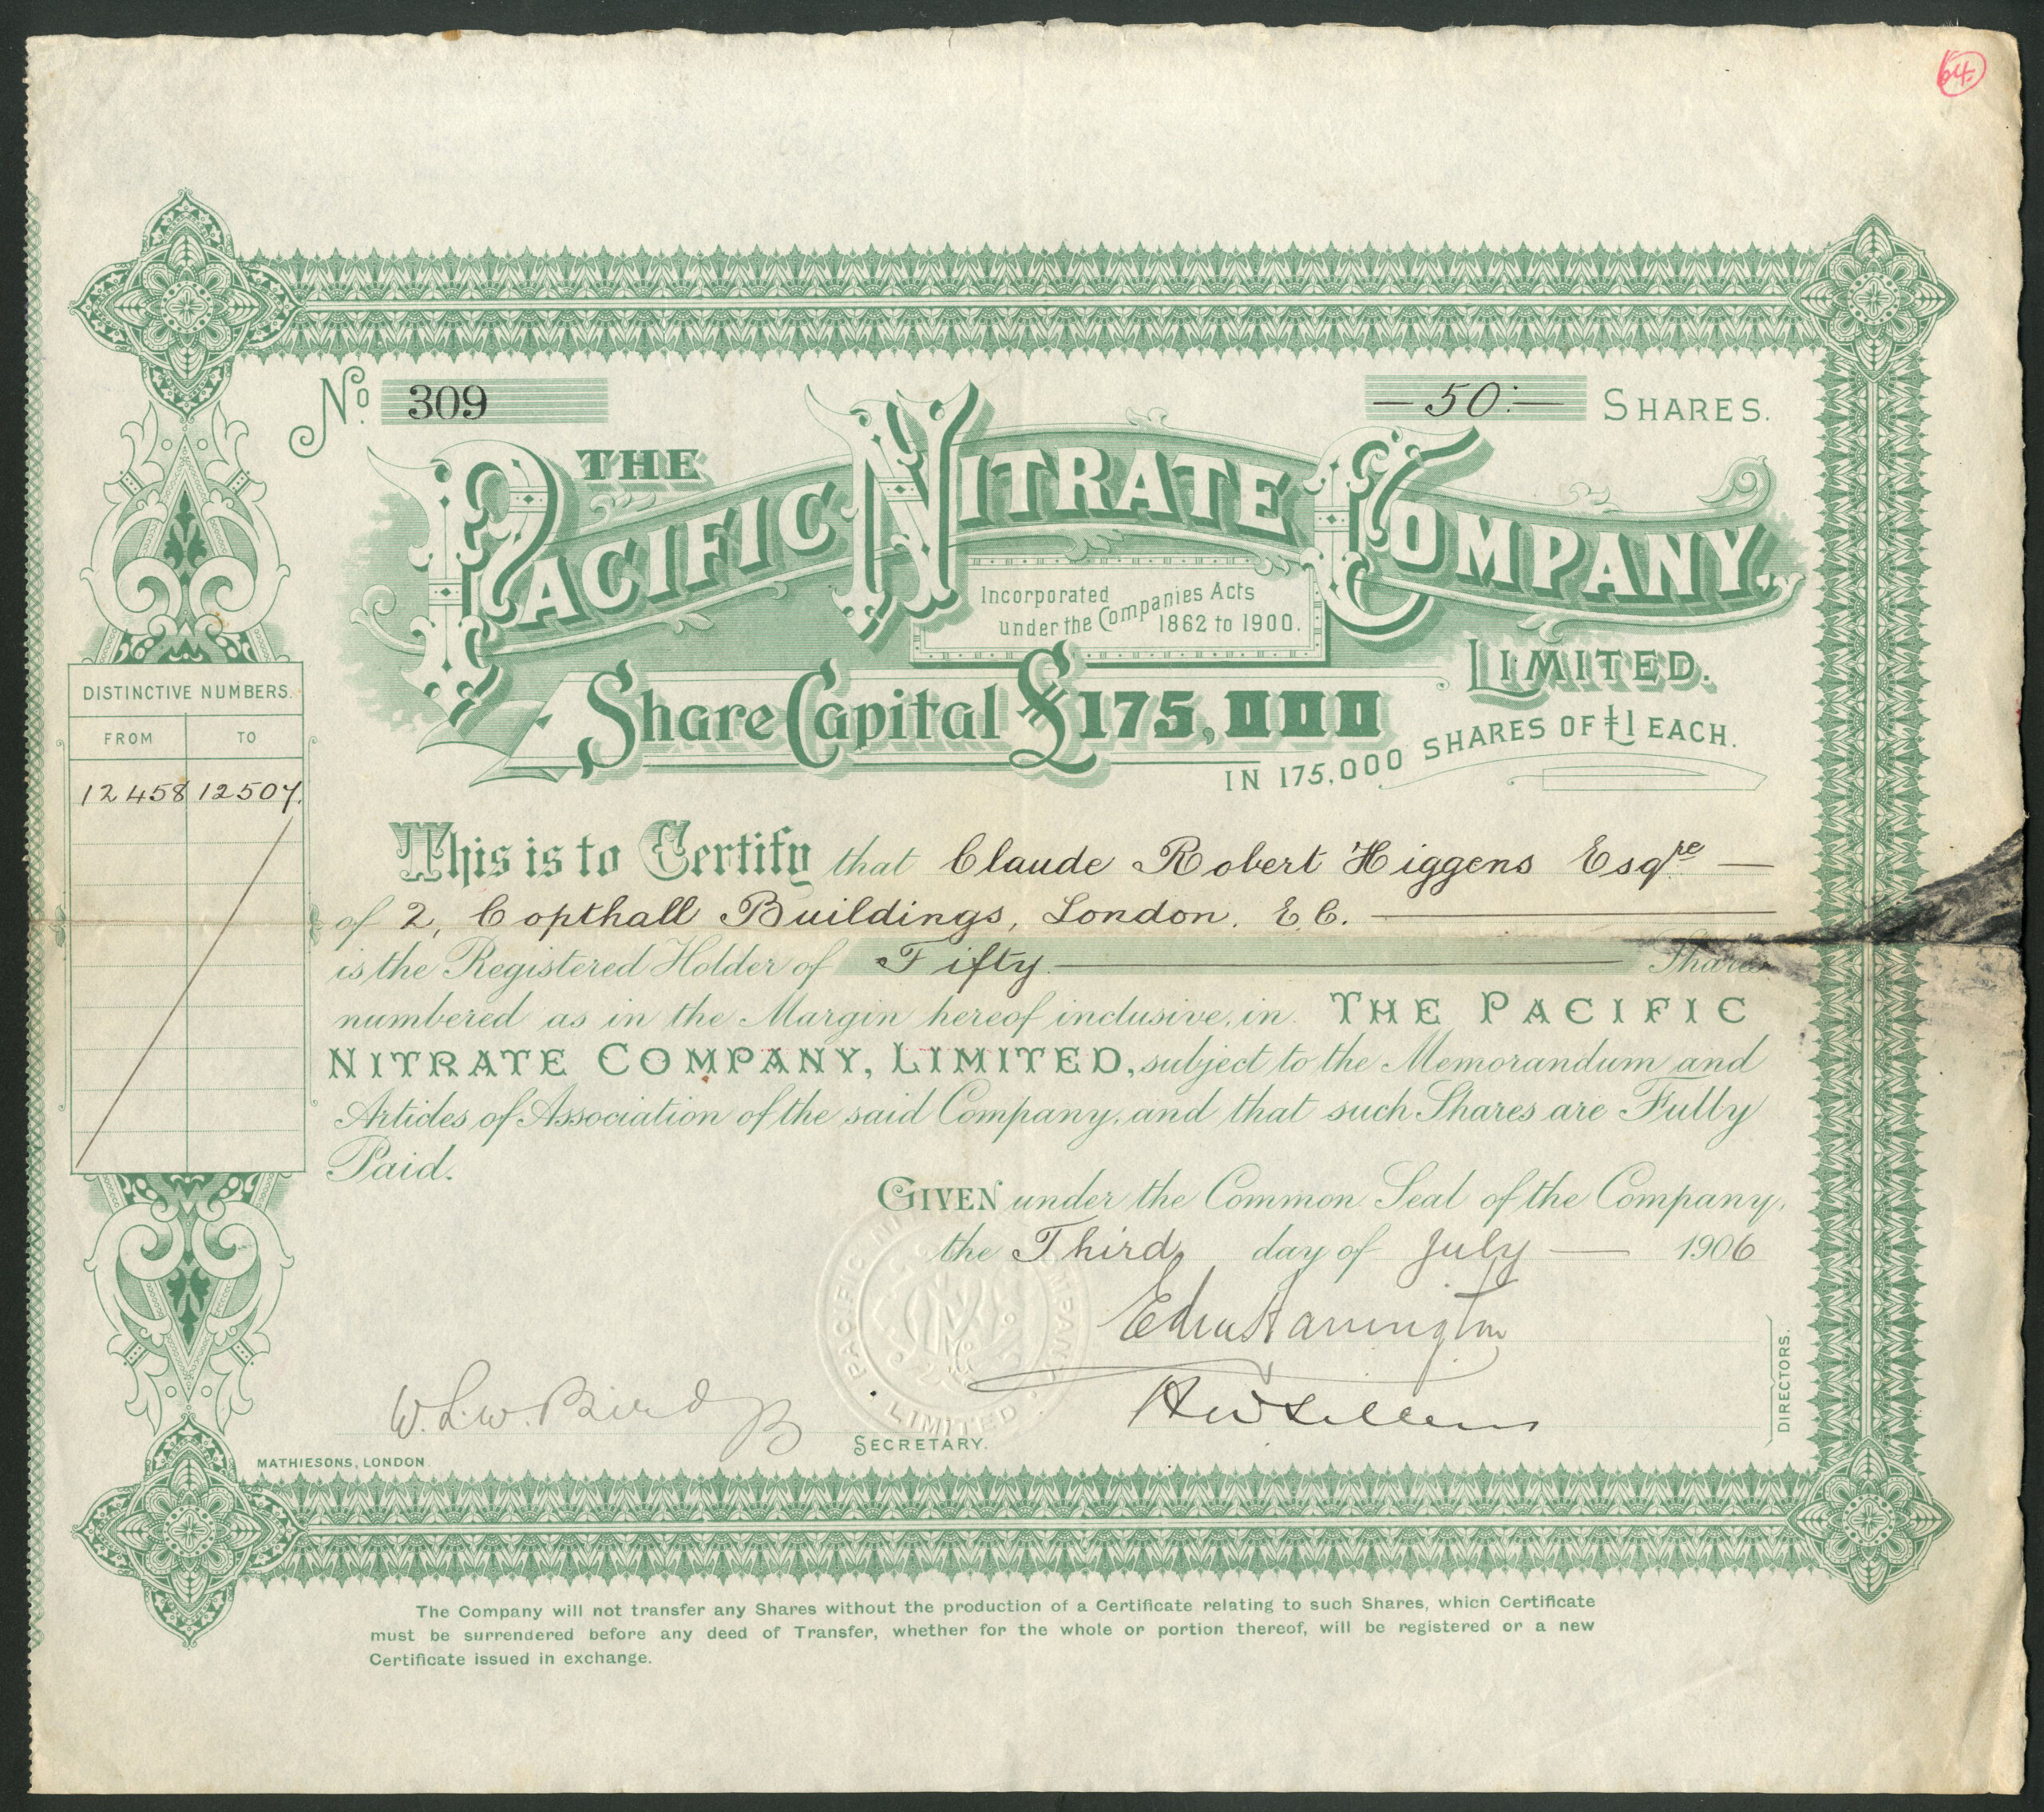 64
No. 309
— 50:— SHARES.
THE
PACIFIC NITRATE COMPANY,
Incorporated
under the Companies Acts
1862 to 1900.
LIMITED.
Share Capital £175,000
IN 175,000 SHARES OF £1 EACH.
DISTINCTIVE NUMBERS.
FROM TO
12458 12507.
This is to Certify that Claude Robert Higgens Esqre —
of 2, Copthall Buildings, London, E.C. —
is the Registered Holder of Fifty — Shares
numbered as in the Margin hereof inclusive, in THE PACIFIC
NITRATE COMPANY, LIMITED, subject to the Memorandum and
Articles of Association of the said Company, and that such Shares are Fully
Paid.
GIVEN under the Common Seal of the Company,
the Third day of July — 1906
PACIFIC NITRATE COMPANY LIMITED
W. L. W. Bird
SECRETARY.
DIRECTORS.
MATHIESONS, LONDON.
The Company will not transfer any Shares without the production of a Certificate relating to such Shares, which Certificate
must be surrendered before any deed of Transfer, whether for the whole or portion thereof, will be registered or a new
Certificate issued in exchange.